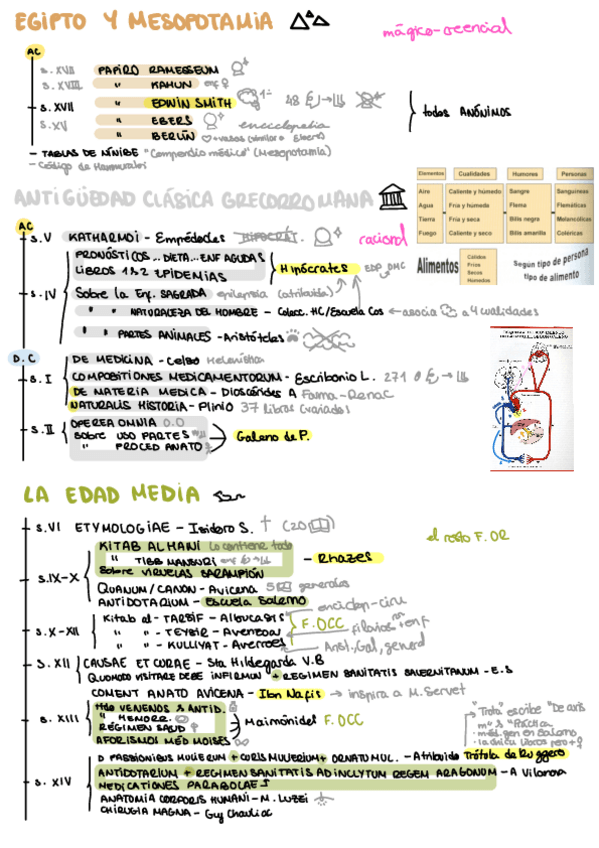 EGIPTO Y MESOPOTAMIA
mágico-creencial
AC
S. XVII PAPIRO RAMESSEUM
S. XVIII " KAHUN
S. XVII " EDWIN SMITH 48
S. XV " EBERS enciclopedia
" BERLÍN
todos ANÓNIMOS
- TABLAS DE NÍNIBE "Compendio médico" (Mesopotamia)
- Código de Hammurabi
ANTIGÜEDAD CLÁSICA GRECORROMANA
Elementos Cualidades Humores Personas
Aire Caliente y húmedo Sangre Sanguíneas
Agua Fría y húmeda Flema Flemáticas
Tierra Fría y seca Bilis negro Melancólicas
Fuego Caliente y seco Bilis amarilla Coléricas
Alimentos
Cálidos
Fríos
Secos
Húmedos
Según tipo de persona
tipo de alimento
AC
S. V KATHARMOI - Empédocles HIPOCRÁT.
racional
PRONÓSTICOS... DIETA... ENF AGUDAS
LIBROS 1 & 2 EPIDEMIAS
Hipócrates
S. IV Sobre la Enf. SAGRADA epilepsia (atribuida)
" " NATURALEZA DEL HOMBRE - Colecc. HC/Escuela Cos ← asocia a 4 cualidades
" " PARTES ANIMALES - Aristóteles
D.C
DE MEDICINA - Celso Helenística
S. I COMPOSITIONES MEDICAMENTORUM - Escribonio L. 271
DE MATERIA MEDICA - Dioscórides A Fama-Renac
NATURALIS HISTORIA - Plinio 37 libros (variados
S. II OPEREA OMNIA O.O
Sobre USO PARTES
" PROCED ANATO
Galeno de P.
LA EDAD MEDIA
S. VI ETYMOLOGIAE - Isidoro S. (20
el resto F. OR
KITAB AL HAWI Lo contiene todo
" TIBB MANSURI
Sobre VIRUELAS SARAMPIÓN
- Rhazes
S. IX-X
QUANUM/CANON - Avicena 5 generales
ANTIDOTARIUM - Escuela Salerno
enciclop-ciru
S. X-XII Kitab al - TARSIF - Albucasis
" " - TEYSIR - Avenzoar
" " - KULLIYAT - Averroes
F. OCC
Arist, Gal, general
S. XII CAUSAE ET CURAE - Sta Hildegarda V.B
QUOMODO VISITARE DEBE INFIRMUN + REGIMEN SANITATIS SALERNITANUM - E.S
COMENT ANATO AVICENA - Ibn Nafis → inspira a M. Servet
S. XIII Htdo VENENOS & ANTID.
" HEMORR.
REGIMEN SALUD
AFORISMOS MÉD MOISÉS
Maimónides F. OCC
"Trota" escribe "De aris
D PASSIONIBUS MULIERUM + CURIS MULIERIUM + ORNATU MUL. - Atribuido Trótula de Ruggero
S. XIV ANTIDOTARIUM + REGIMEN SANITATIS AD INCLYTUM REGEM ARAGONUM - A Vilanova
MEDICATIONES PARABOLAE
ANATOMIA CORPORIS HUMANI - M. LUZZI
CHIRUGIA MAGNA - Guy Chauliac